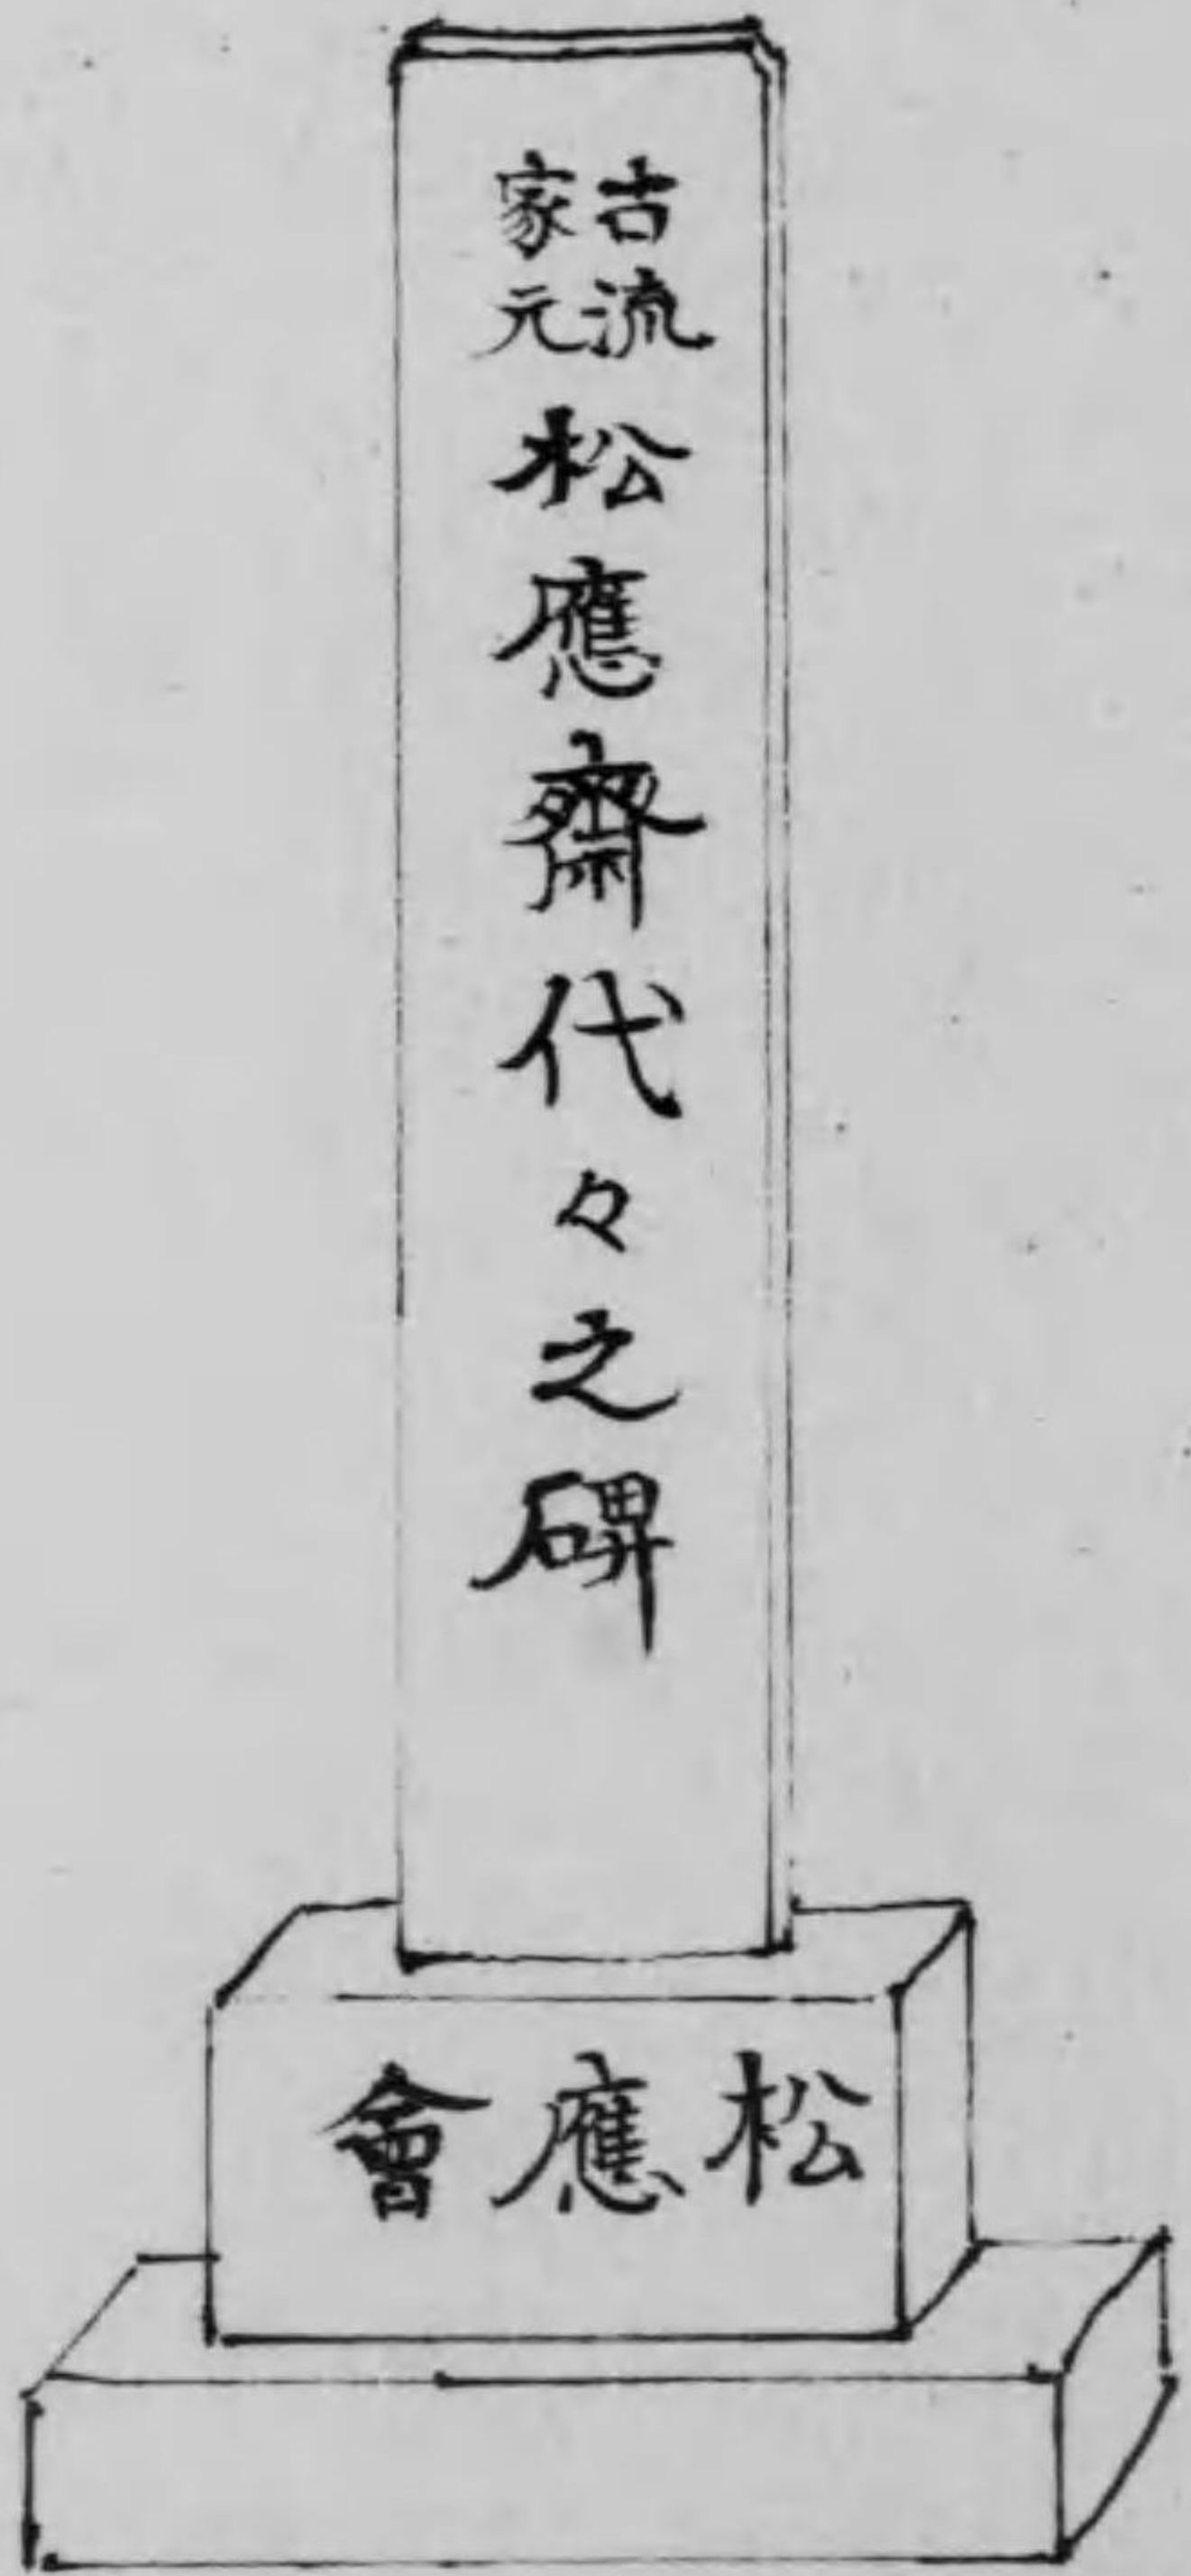 古流
家元
松應齋代々之碑
松應會